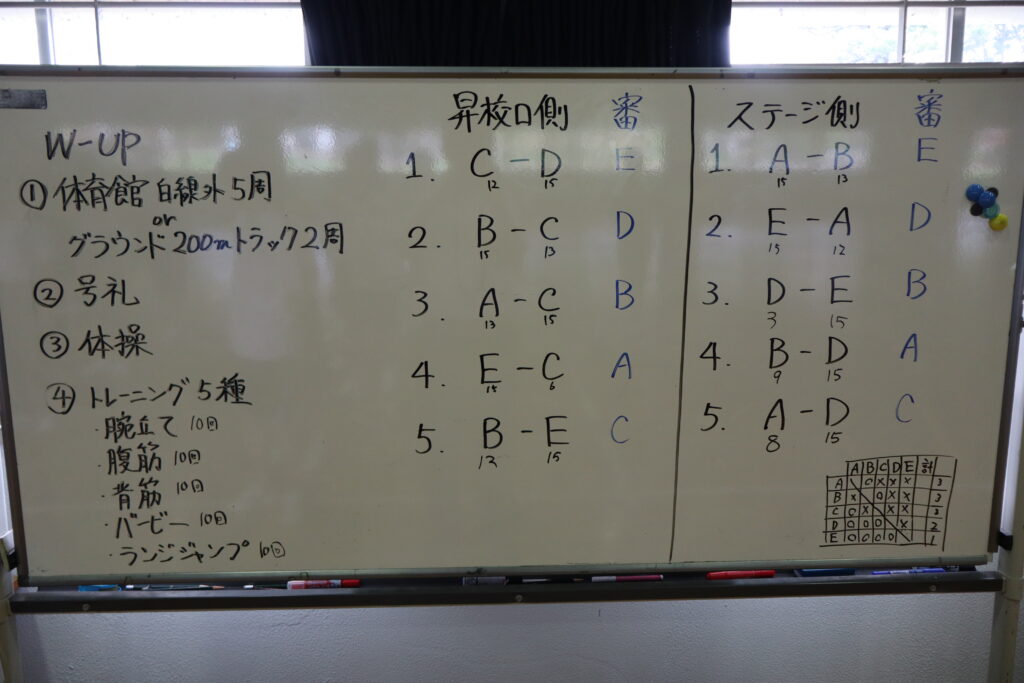 W-UP
① 体育館 白線外5周
or
グラウンド200mトラック2周
② 号礼
③ 体操
④ トレーニング5種
・腕立て 10回
・腹筋 10回
・背筋 10回
・バービー 10回
・ランジジャンプ 10回
昇校口側 審
1. C - D E
12 15
2. B - C D
15 13
3. A - C B
13 15
4. E - C A
15 6
5. B - E C
12 15
ステージ側 審
1. A - B E
15 13
2. E - A D
15 12
3. D - E B
3 15
4. B - D A
9 15
5. A - D C
8 15
A B C D E 計
A \ O X X X 3
B X \ O X X 3
C O X \ X X 3
D O O O \ X 2
E O O O O \ 1